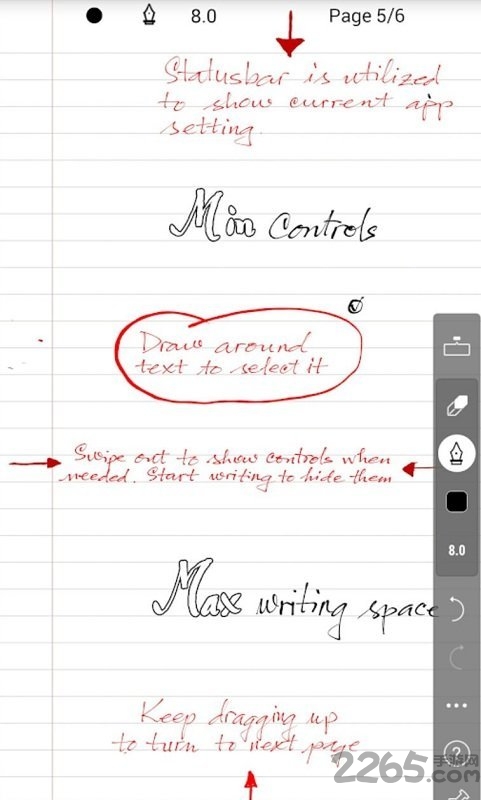 8.0 Page 5/6
Statusbar is utilized
to show current app
setting.
Min Controls
Draw around
text to select it
Swipe out to show controls when
needed. Start writing to hide them
8.0
Max writing space
Keep dragging up
to turn to next page
?
2265.com
手游网